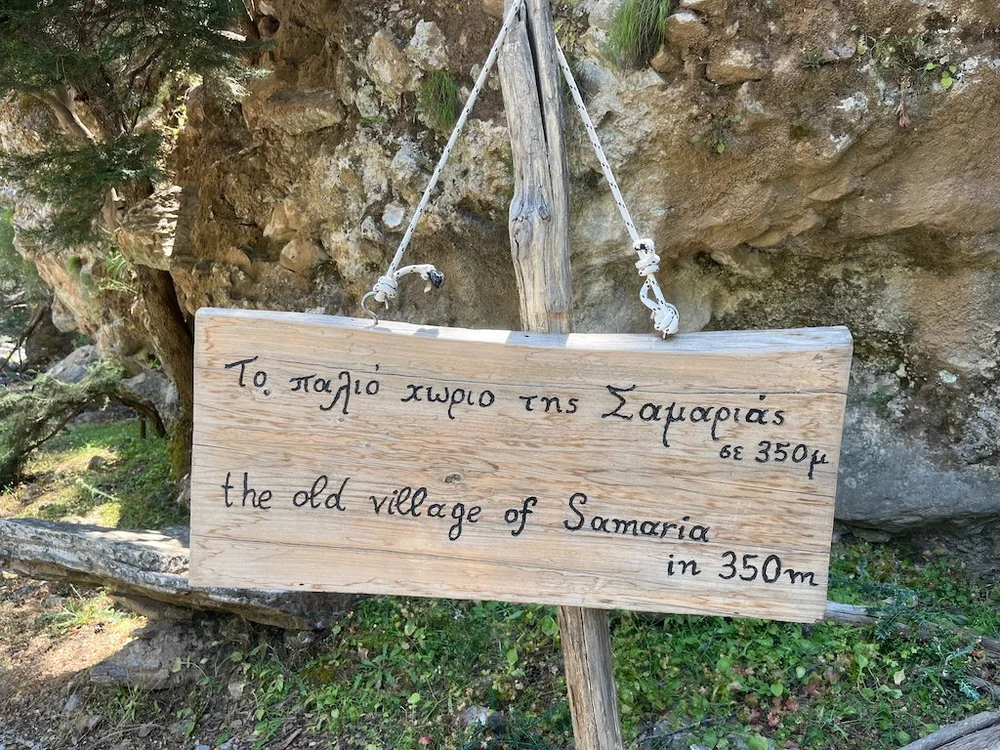 Το παλιό χωριο της Σαμαριάς
σε 350μ
the old village of Samaria
in 350m